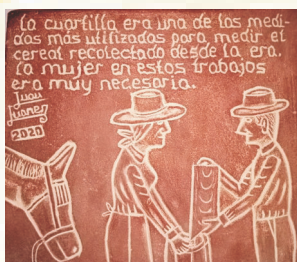 la cuartilla era una de las medi-
das más utilizadas para medir el
cereal recolectado desde la era.
la mujer en estos trabajos
era muy necesaria.
Juan
Juanez
2020